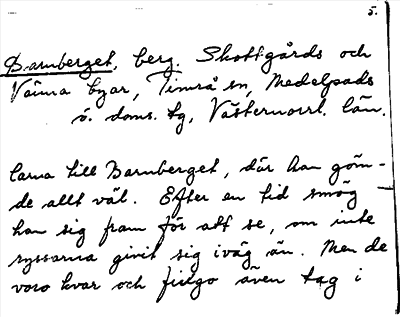 5.
Barnberget, berg. Skottgårds och
Väinna byar, Timrå sn, Medelpads
ö. doms. tg, Västernorrl. län.
larna till Barnberget, där han göm-
de allt väl. Efter en tid smög
han sig fram för att se, om inte
ryssarna givit sig iväg än. Men de
voro kvar och fingo även tag i